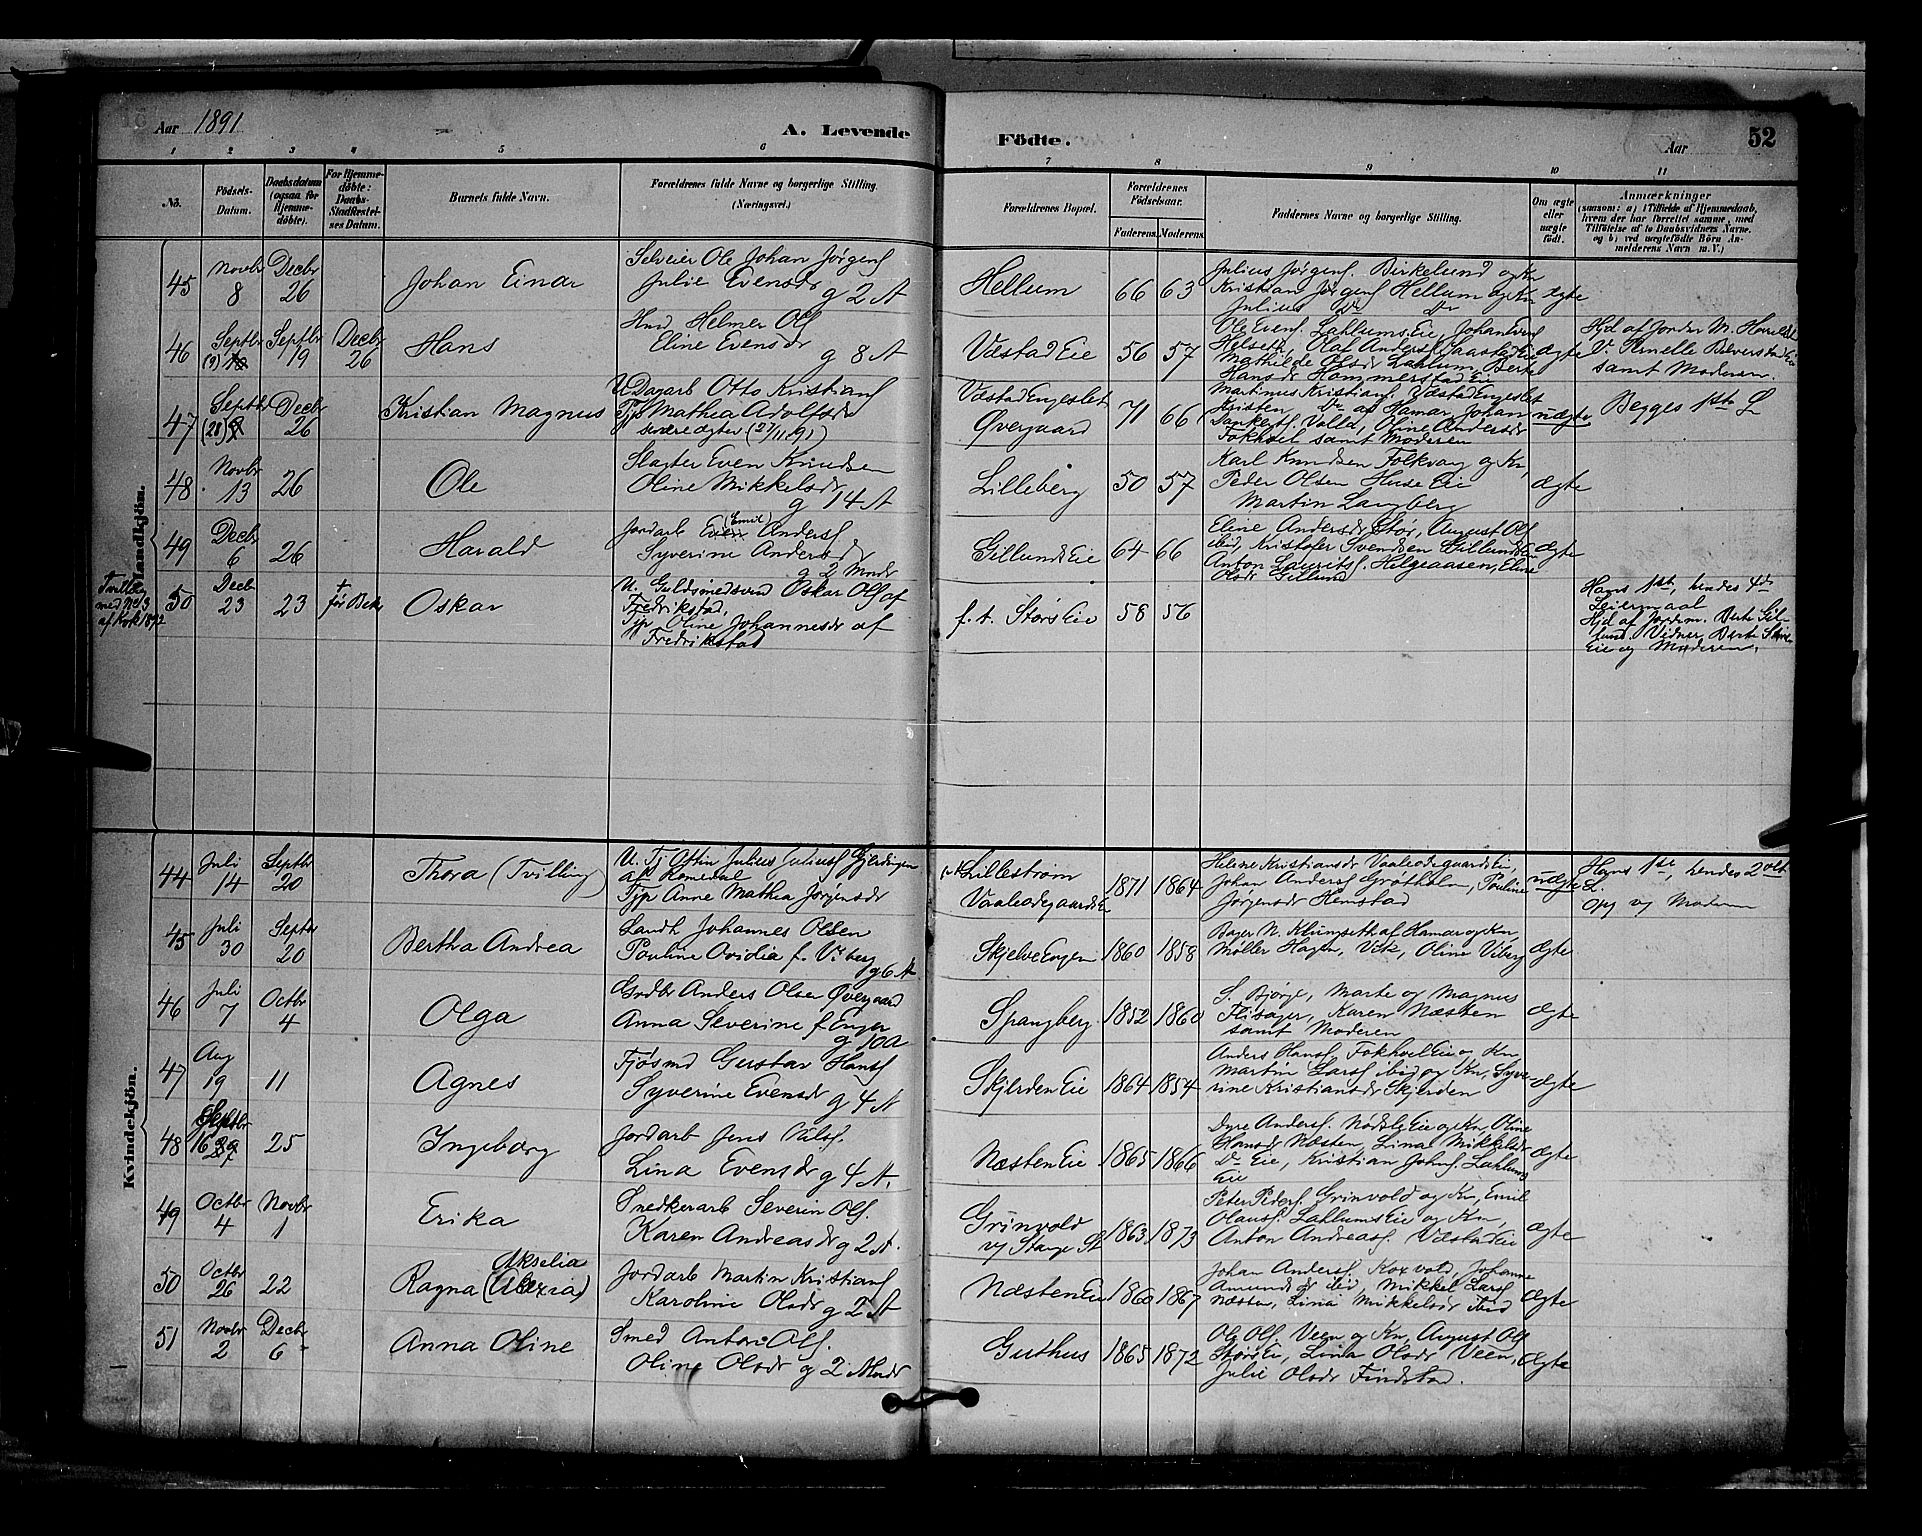 Aar 1891
A. Levende Födte.
Aar
52
1 2 3 4 5 6 7 8 9 10 11
No.
Födsels-Datum.
Daabsdatum (ogsaa for Hjemmedöbte).
For Hjemmedöbte: Daabs-Stadfæstelses Datum.
Barnets fulde Navn.
Forældrenes fulde Navne og borgerlige Stilling. (Næringsvei.)
Forældrenes Bopæl.
Forældrenes Födselsaar.
Faderens. Moderens.
Faddernes Navne og borgerlige Stilling.
Om ægte eller uægte født.
Anmærkninger
(saasom: a) i Tilfælde af Hjemmedaab, hvem der har forrettet samme, med Tilföielse af to Daabsvidners Navne. og b) ved uægtefödte Börn Anmelderens Navn m. V.)
Mandkjön.
45 Novbr 8 Decbr 26 Johan Einar
Selveier Ole Johan Jørgens
Julie Evensdr g 2 A
Hellum 66 63
Julius Jørgens. Birkelund og Kn
Kristian Jørgens Hellum og Kn
Julius Do Do
ægte
46 Septbr (9) Septbr 19 Decbr 26 Hans
Hmd Helmer Ols
Eline Evensdr g 8 A
Væstad Eie 56 57
Ole Evens. Lahlums Eie, Johan Evens
Helseth, Olaf Anders Saastad Eie
Mathilde Olsdr Lahlum, Berte
Hansdr Hammerstad Eie
ægte
Hjd af Jordm M.
samt Moderen.
47 Septbr (28) Decbr 26 Kristian Magnus
U Dagarb Otto Kristians
Tjp Mathea Adolfsdr
senere ægter (27/11 91)
Væstad Engeslet
Øvergaard 71 66
Martinus Kristians. Væstad Engeslet
Kristen Do af Hamar, Johan
Volla, Oline Andersdr
Fokhoel samt Moderen
uægte
Begges 1ste L
48 Novbr 13 26 Ole
Slagter Even Knudsen
Oline Mikkelsdr g 14 A
Lilleberg 50 57
Karl Knudsen Folkvang og Kn,
Peder Olsen Huse Eie
Martin Langberg
ægte
49 Decbr 6 26 Harald
Jordarb Even (Emil) Anders
Syverine Andersdr
g 2 Mndr
Gillunds Eie 64 66
Eline Andersdr Stør, August Ols
ibid, Kristofer Svendsen Gillunds Eie
Anton Laurits. Helgeaasen, Eline
Olsdr Gillund
ægte
Tvilling med No 3 af Kvk 1892
50 Decbr 23 23 † før Bekr Oskar
U. Guldsmedsvend Oskar Ols af
Fredrikstad,
Tjp Oline Johannesdr af
Fredrikstad
f. t. Størs Eie 58 56
Hans 1ste, hendes 4de
Leiermaal
Hjd af Jordm. Berte Gil-
lund. Vidner Berte Størs
Eie og Moderen.
Kvindekjön.
44 Juli 14 Septbr 20 Thora (Tvilling)
U. Tj Ottin Julius Julius Gjerdingen
af Romedal
Tjp Anne Mathea Jørgensdr
Lillestrøm
Vaaleodegaards Eie 1871 1864
Helene Kristiansdr Vaaleodegaards Eie,
Johan Anders Grøtholm, Pauline
Jørgensdr Hemstad
uægte
Hans 1ste, hendes 2det
L.
Opg v Moderen
45 Juli 30 Septbr 20 Bertha Andrea
Landh Johannes Olsen
Pauline Ovidia f. Viberg
g 6 A
Skjelve Engen 1860 1858
Bager N. Klungseth af Hamar og Kn,
Møller Hagen, Vik, Oline Viberg
ægte
46 Juli 7 Octbr 4 Olga
Grdbr Anders Olsen Øvergaard
Anna Severine f Enger
g 10 a
Spangberg 1852 1860
S. Bjørge, Marte og Magnus
Flisager, Karen Næsten
samt Moderen
ægte
47 Aug 19 11 Agnes
Fjøsmd Gustav Hans
Syverine Evensdr g 4 A
Skjerden Eie 1864 1854
Anders Hans. Fokhoel Eie og Kn
Martin Lars ibid og Kn, Syve-
rine Kristiansdr Skjerden
ægte
48 Septbr 16 25 Ingeborg
Jordarb Jens Nils.
Lina Evensdr g 4 A.
Næsten Eie 1865 1866
Dyre Anders. Nødsle Eie og Kn, Oline
Hansdr Næsten, Lina Mikkelsdr
Do Eie, Kristian Johns. Lahlums
Eie
ægte
49 Octbr 4 Novbr 1 Erika
Snedkerarb Severin Ols.
Karen Andreasdr g 2 A.
Grinvold
v/ Stange St 1863 1873
Peter Peders. Grinvold og Kn, Emil
Olaus. Lahlums Eie og Kn,
Anton Andreas. Væstad Eie
ægte
50 Octbr 26 22 Ragna (Alexia) Akselia
Jordarb Martin Kristians
Karoline Olsdr g 2 A
Næsten Eie 1860 1867
Johan Anders. Koxvold, Johanne
Amundsdr ibid, Mikkel Lars
Næsten, Lina Mikkelsdr ibid
ægte
51 Novbr 2 Decbr 6 Anna Oline
Smed Anton Ols.
Oline Olsdr g 2 Mndr
Guthus 1865 1872
Ole Ols. Veen og Kn, August Ols
Størs Ei, Lina Olsdr Veen,
Julie Olsdr Findstad.
ægte